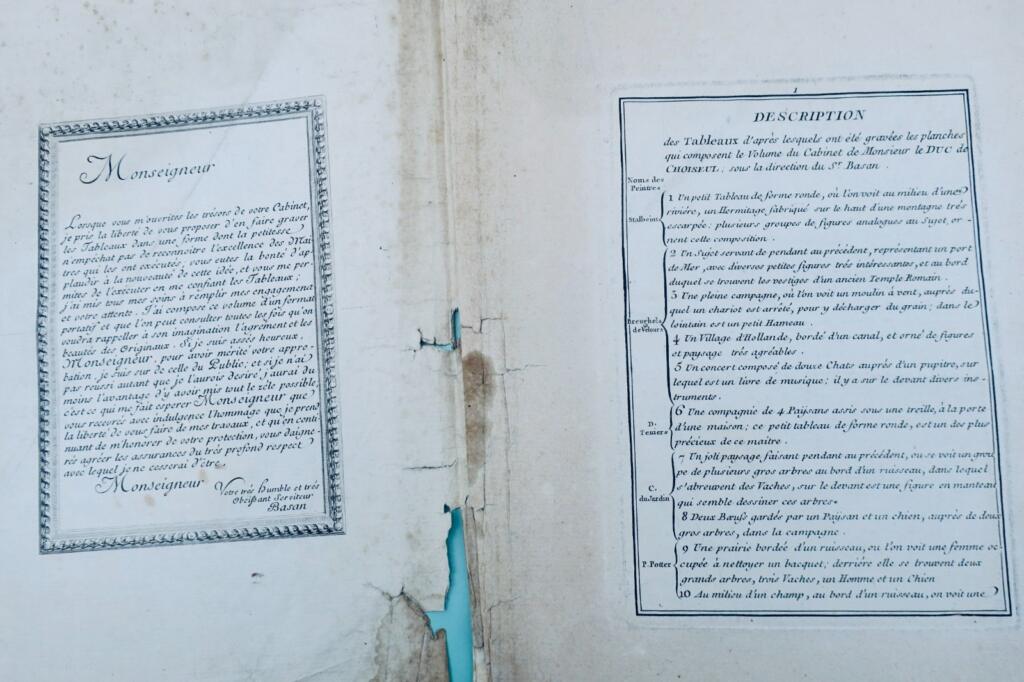 Monseigneur
Lorsque vous m'ouvrites les trésors de votre Cabinet,
je pris la liberté de vous proposer d'en faire graver
les Tableaux dans une forme dont la petitesse
n'empéchat pas de reconnoitre l'excellence des Mai-
tres qui les ont exécutés; vous eutes la bonté d'ap-
plaudir à la nouveauté de cette idée, et vous me per-
mites de l'exécuter en me confiant les Tableaux;
j'ai mis tous mes soins à remplir mon engagement
et votre attente. J'ai composé ce volume d'un format
portatif et que l'on peut consulter toutes les fois qu'on
voudra rappeller à son imagination l'agrément et les
beautés des Originaux. Si je suis assés heureux,
Monseigneur, pour avoir mérité votre appro-
bation, je suis sur de celle du Public; et si je n'ai
pas réussi autant que je l'aurois desiré, j'aurai du
moins l'avantage d'y avoir mis tout le zéle possible,
c'est ce qui me fait esperer Monseigneur que
vous recevrés avec indulgence l'hommage que je prend
la liberté de vous faire de mes travaux, et qu'en conti
nuant de m'honorer de votre protection, vous daigne-
rés agréer les assurances du trés profond respect
avec lequel je ne cesserai d'être
Monseigneur
Votre trés humble et trés
Obéissant Serviteur
Basan
1
DESCRIPTION
des Tableaux d'après lesquels ont été gravées les planches
qui composent le Volume du Cabinet de Monsieur le DUC de
CHOISEUL; sous la direction du Sr. Basan.
Noms des
Peintres
Stalbeins
1 Un petit Tableau de forme ronde, où l'on voit au milieu d'une
riviére, un Hermitage fabriqué sur le haut d'une montagne trés
escarpée; plusieurs groupes de figures analogues au Sujet, or-
nent cette composition.
2 Un Sujet servant de pendant au précédent, représentant un port
de Mer, avec diverses petites figures trés intéressantes, et au bord
duquel se trouvent les vestiges d'un ancien Temple Romain.
Breughels
de Velours
3 Une pleine campagne, où l'on voit un moulin à vent, auprés du-
quel un chariot est arrêté, pour y décharger du grain; dans le
lointain est un petit Hameau.
4 Un Village d'Hollande, bordé d'un canal, et orné de figures
et paysage trés agréables.
5 Un concert composé de douze Chats auprés d'un pupitre, sur
lequel est un livre de musique; il y a sur le devant divers ins-
truments.
D.
Teniers
6 Une compagnie de 4 Paÿsans assis sous une treille, à la porte
d'une maison; ce petit tableau de forme ronde, est un des plus
précieux de ce maitre.
C.
du Jardin
7 Un joli paysage faisant pendant au précédent, ou se voit un grou
pe de plusieurs gros arbres au bord d'un ruisseau, dans lequel
s'abreuvent des Vaches, sur le devant est une figure en manteau
qui semble dessiner ces arbres.
8 Deux Bœufs gardés par un Paÿsan et un chien, auprés de deux
gros arbres, dans la campagne.
P. Potter
9 Une prairie bordée d'un ruisseau, ou l'on voit une femme oc-
cupée à nettoyer un bacquet; derriére elle se trouvent deux
grands arbres, trois Vaches, un Homme et un Chien
10 Au milieu d'un champ, au bord d'un ruisseau, on voit une